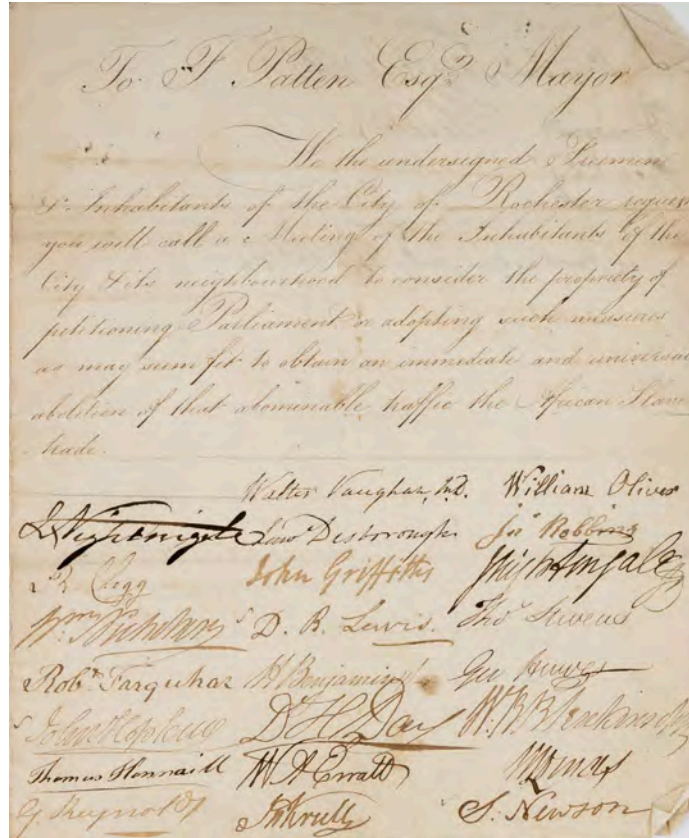 To F Patten Esqr. Mayor
We the undersigned Freemen
& Inhabitants of the City of Rochester request
you will call a Meeting of the Inhabitants of the
City & its neighbourhood to consider the propriety of
petitioning Parliament or adopting such measures
as may seem fit to obtain an immediate and universal
abolition of that abominable traffic the African Slave
trade.
Walter Vaughan, M.D. William Oliver
Nightingale Desborough Jno Robbins
Clegg John Griffiths Nightingale
Wm Nicholson D. B. Lewis. Thos Stevens
Robt. Farquhar H Benjamin Geo
John Hopkins D H Day W. B. B. Jenkinson
Thomas W A Erratt
G Reynolds S. Newson